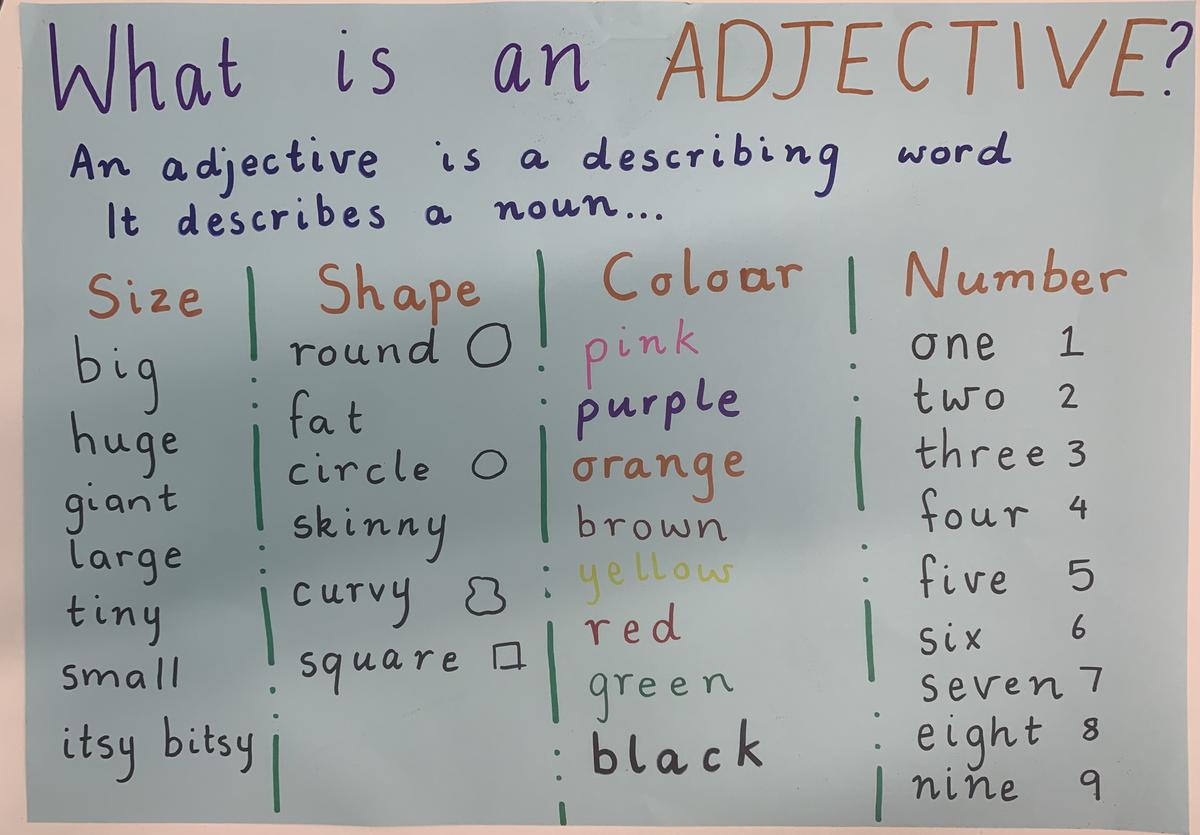 What is an ADJECTIVE?
An adjective is a describing word
It describes a noun...
Size
big
huge
giant
large
tiny
small
itsy bitsy
Shape
round
fat
circle
skinny
curvy
square
Colour
pink
purple
orange
brown
yellow
red
green
black
Number
one 1
two 2
three 3
four 4
five 5
six 6
seven 7
eight 8
nine 9